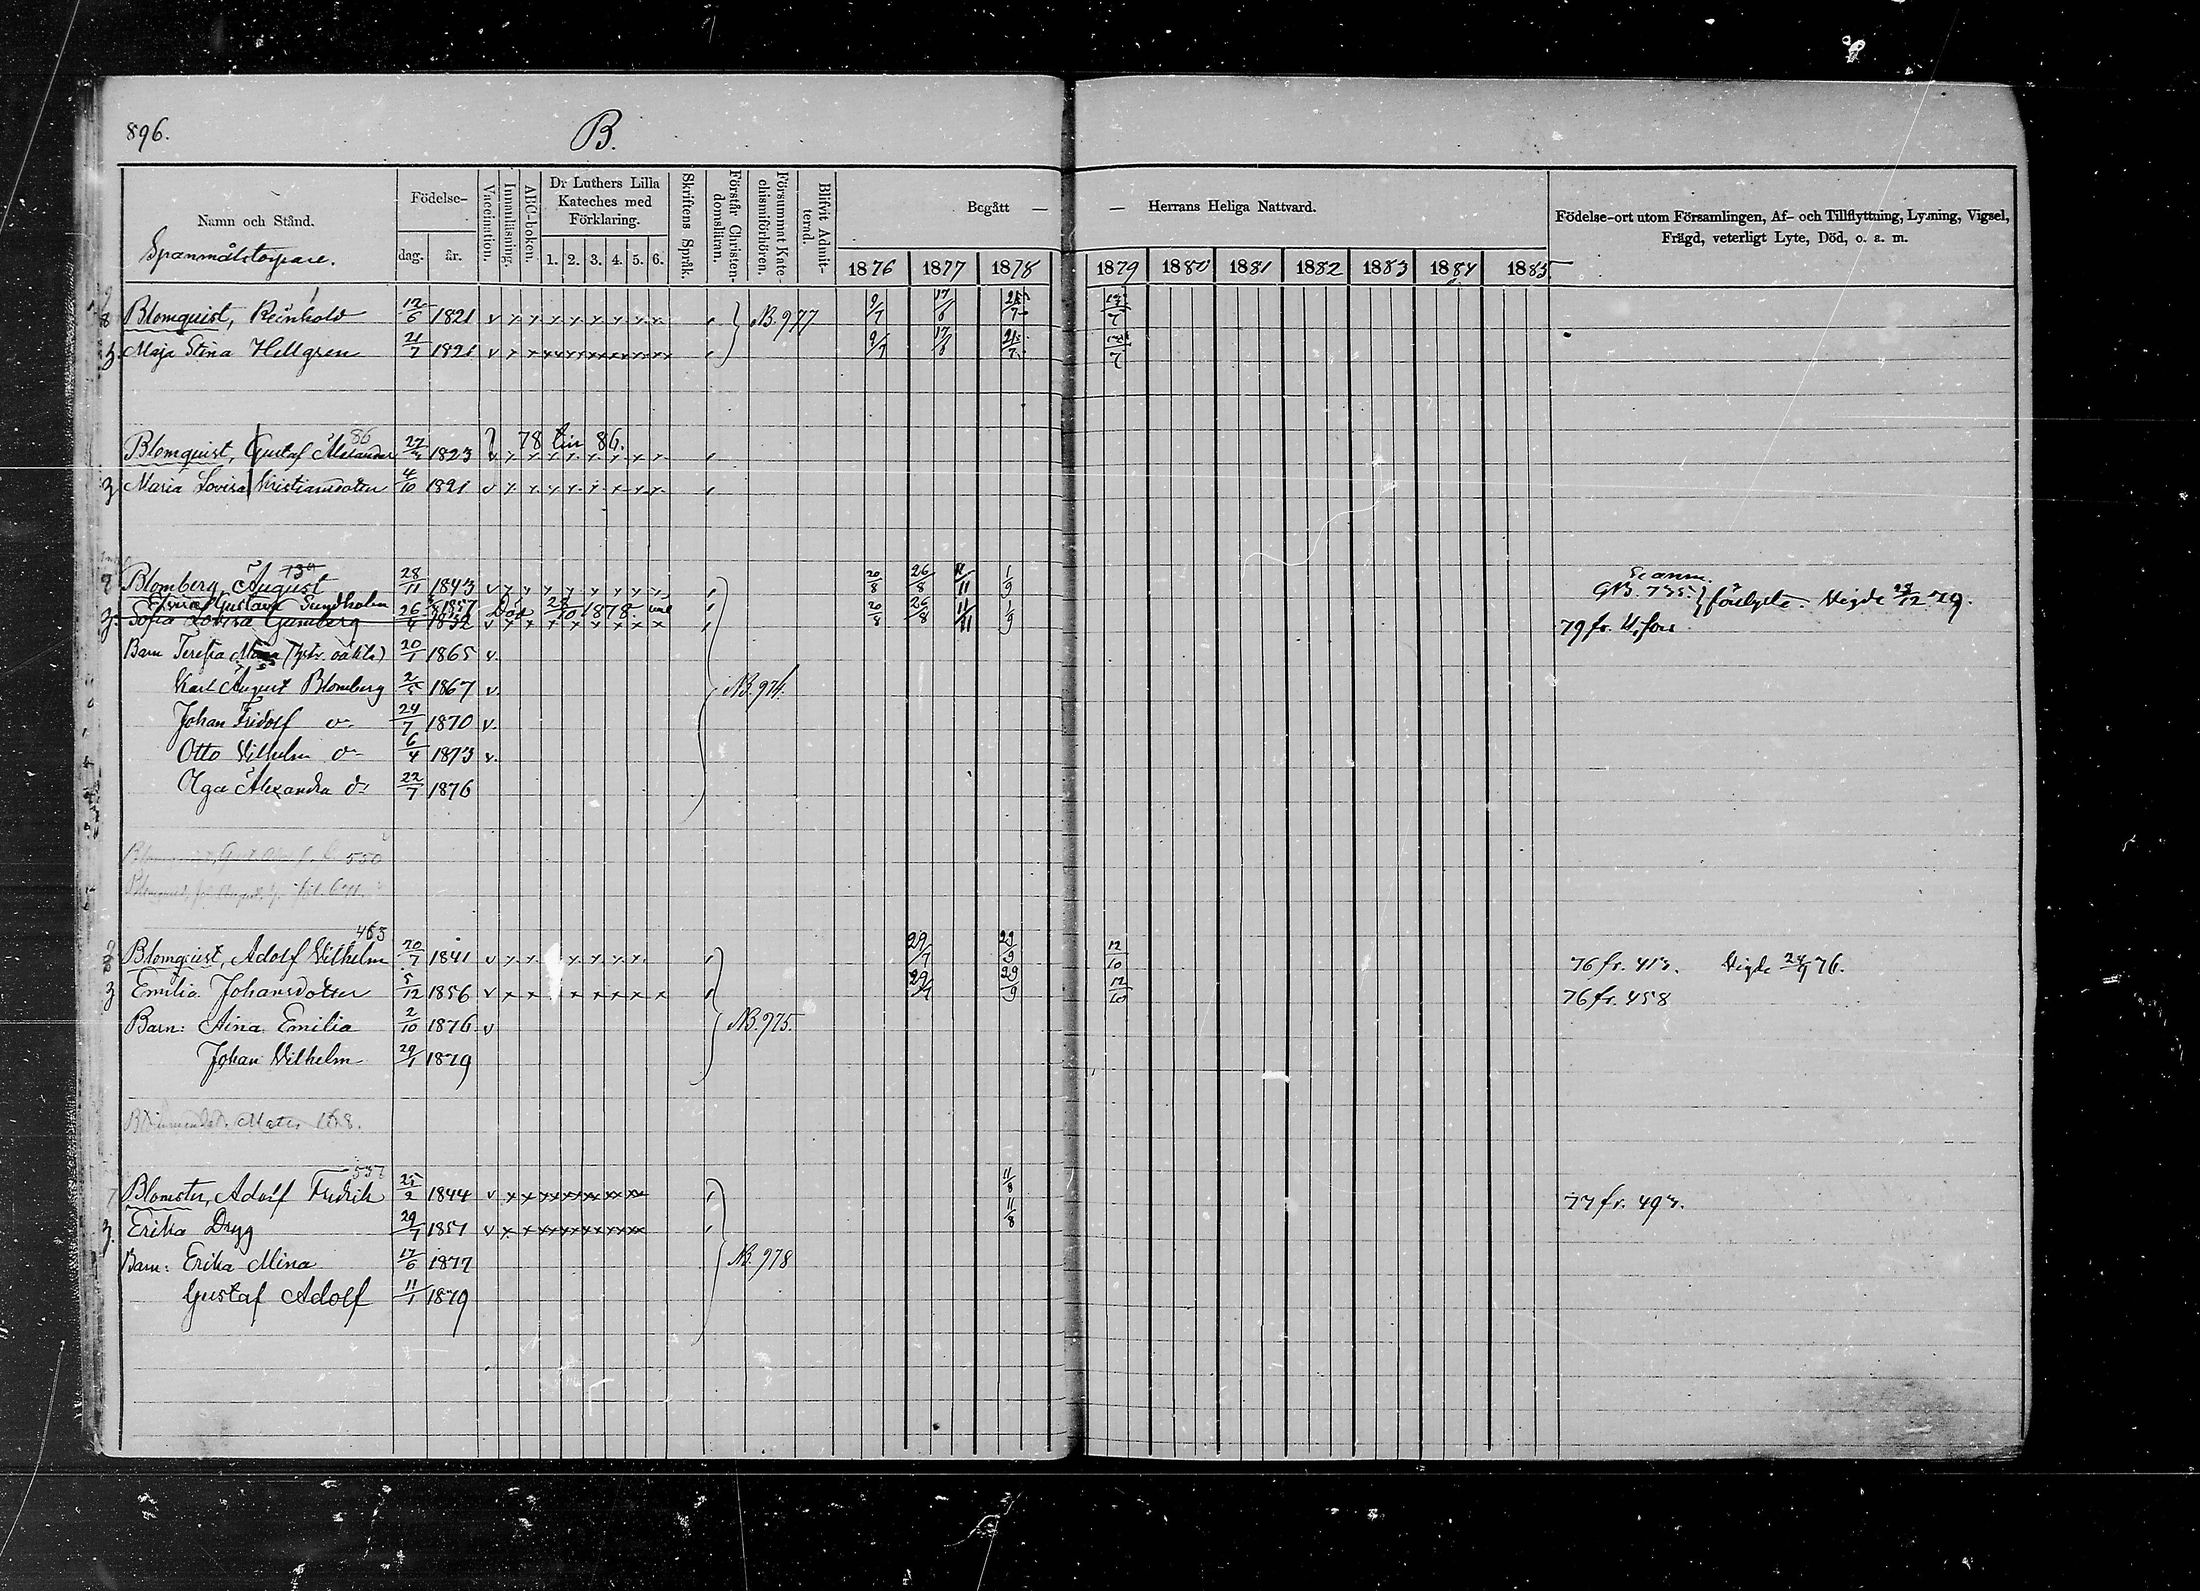 896.
B.
Namn och Stånd.
Spanmålstorpare.
Födelse-
dag. år.
Vaccination.
Innanläsning.
ABC-boken.
Dr Luthers Lilla
Kateches med
Förklaring.
1. 2. 3. 4. 5. 6.
Skriftens Språk.
Förstår Christen-
domsläran.
Försummat Kate-
chismiförhören.
Blifvit Admit-
terad.
Begått — — Herrans Heliga Nattvard.
1876 1877 1878 1879 1880 1881 1882 1883 1884 1885
Födelse-ort utom Församlingen, Af- och Tillflyttning, Lysning, Vigsel,
Frägd, veterligt Lyte, Död, o. a. m.
Blomquist, Reinhold 12/6 1821 v NB. 977 9/7 17/6
Maja Stina Hellgren 21/7 1821 v 9/7 17/6
86 78 86.
Blomquist, Gustaf Alexander 1823 v
3 Maria Lovisa Kristiansdotter 4/10 1821 v
Blomberg, August 28/11 1843 v 20/8 26/8 11/11 1/9 GB. 735. Vigde 28/12 79.
Gustava Sundholm 1857 Död 1878. 79 fr. H.fors
Sofia Lovisa Gumberg 26/4 1832 v 20/8 26/8 11/11 1/9
Barn Teresia 20/1 1865 v.
Karl August Blomberg 2/5 1867 v. NB. 974.
Johan Fridolf 24/7 1870 v.
Otto Vilhelm 6/4 1873 v.
Olga Alexandra 22/7 1876
550
463
Blomquist, Adolf Vilhelm 20/7 1841 v 29/7 29/9 12/10 76 fr. 413. Vigde 76.
3 Emilia Johansdotter 5/12 1856 v 29/7 29/9 12/10 76 fr. 458
Barn: Aina Emilia 2/10 1876 v NB. 975.
Johan Vilhelm 29/1 1879
Blomster, Adolf Fredrik 25/2 1844 v 11/8 77 fr. 493.
3. Erika Drygg 29/7 1857 v 11/8
Barn: Erika Mina 17/6 1877 NB. 978
Gustaf Adolf 11/1 1879